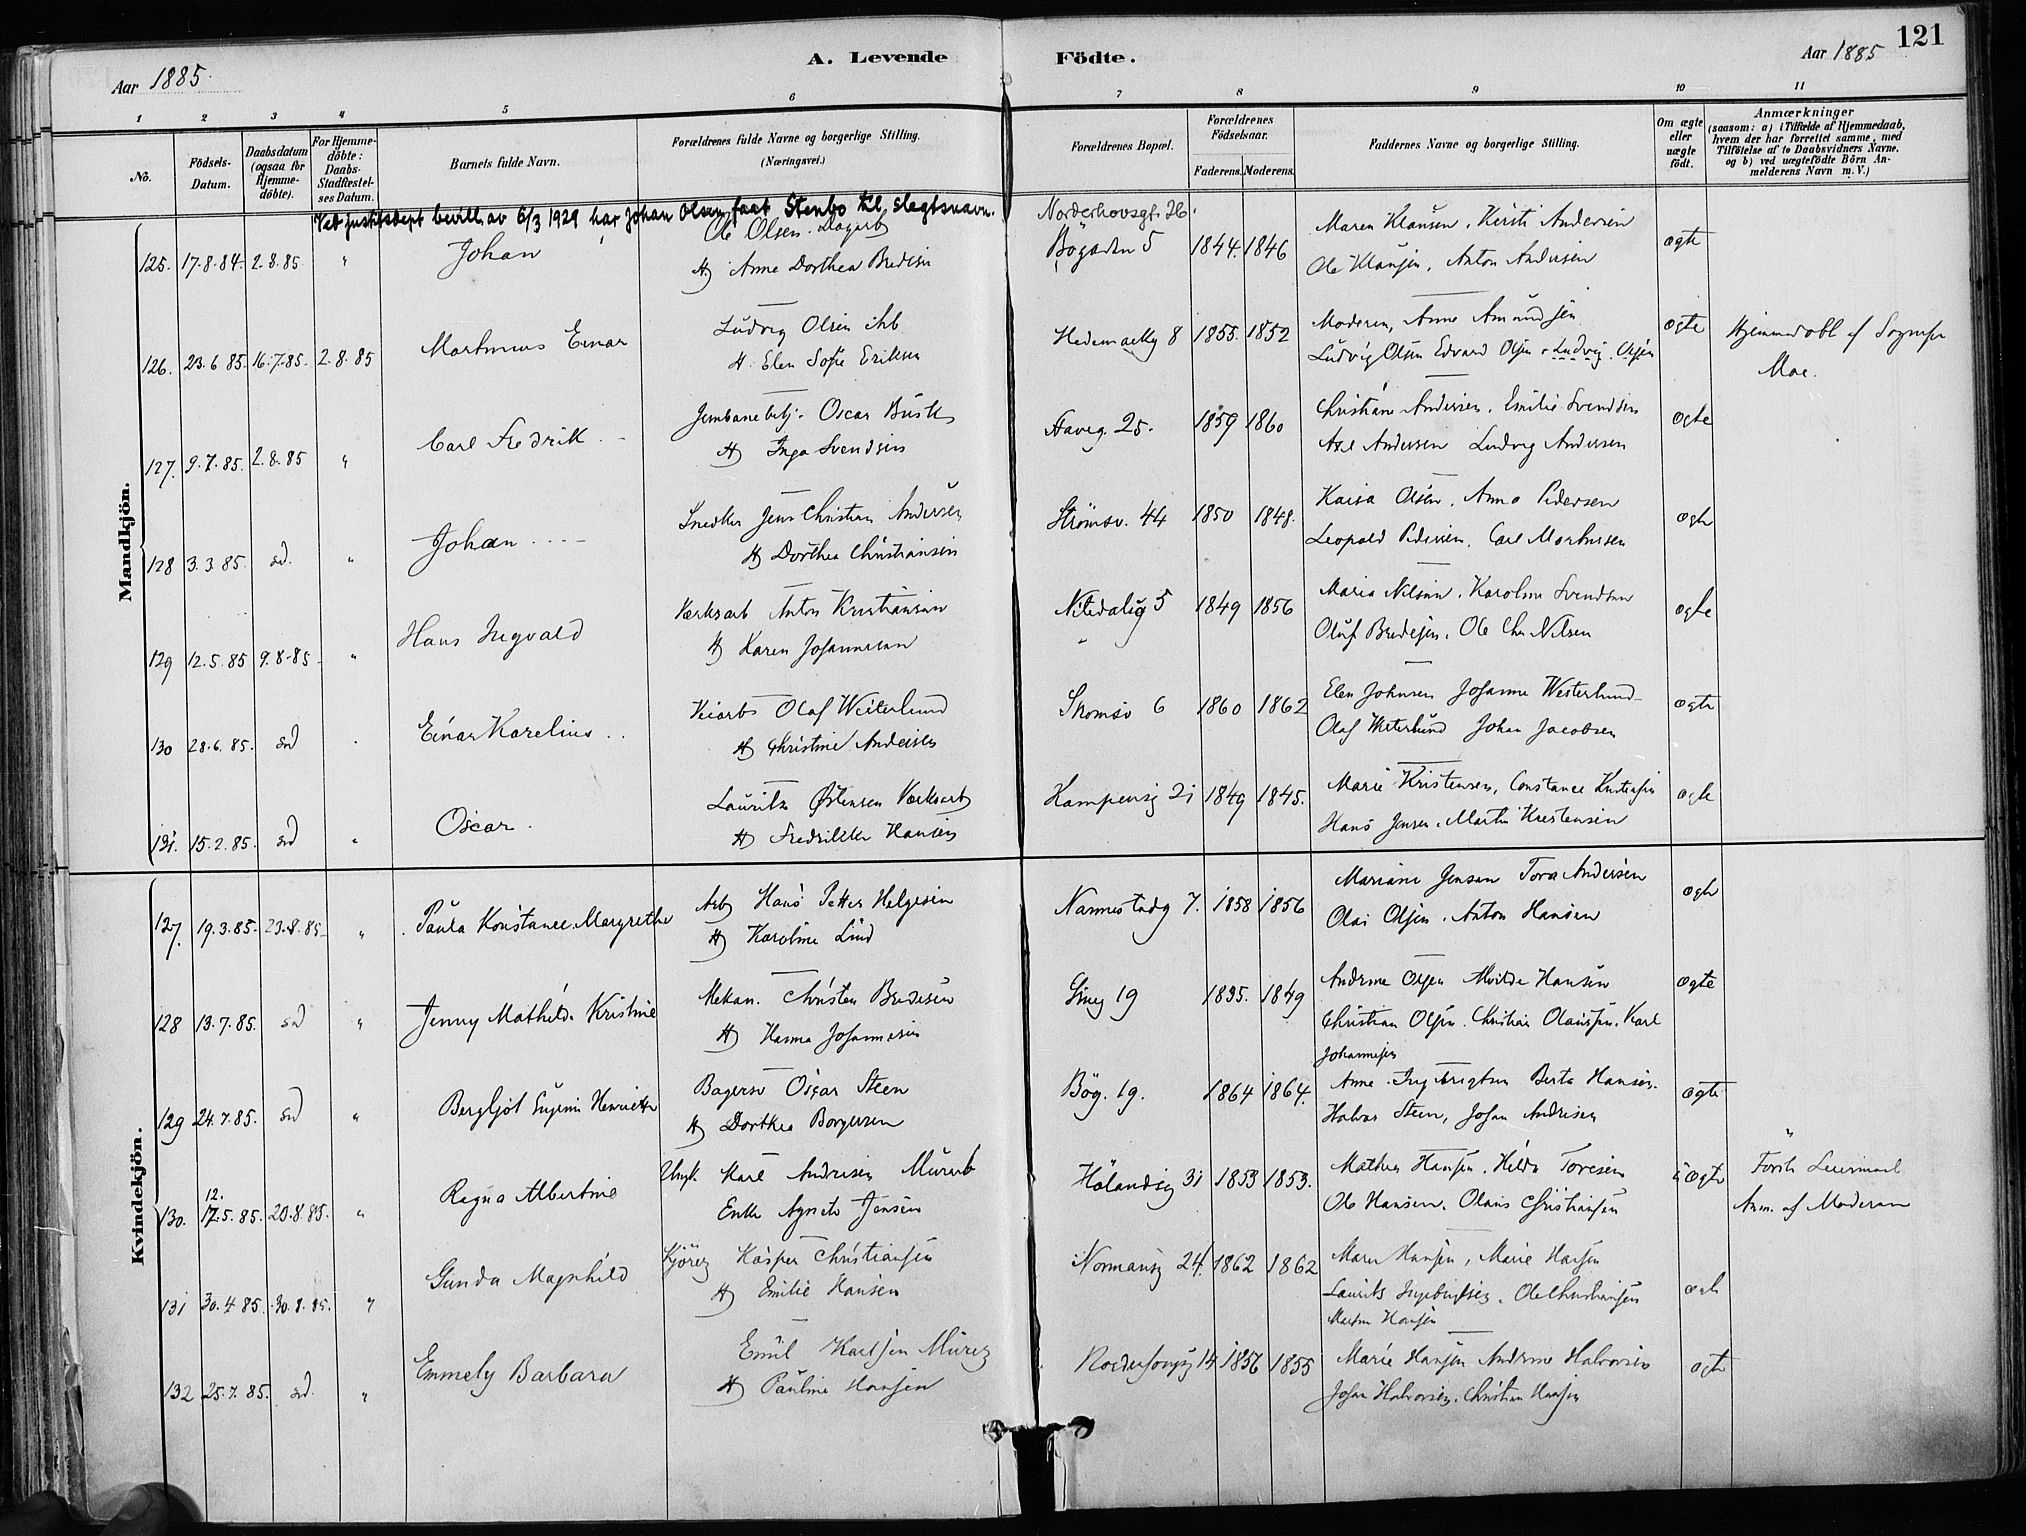 Aar 1885.
A. Levende Födte.
Aar 1885
121
1 2 3 4 5 6 7 8 9 10 11
No.
Födsels-Datum.
Daabsdatum (ogsaa for Hjemme-döbte).
For Hjemme-döbte: Daabs-Stadfæstel-ses Datum.
Barnets fulde Navn.
Forældrenes fulde Navne og borgerlige Stilling. (Næringsvei.)
Forældrenes Bopæl.
Forældrenes Födselsaar.
Faderens. Moderens.
Faddernes Navne og borgerlige Stilling.
Om ægte eller uægte födt.
Anmærkninger
(saasom: a) i Tilfælde af Hjemmedaab, hvem der har forrettet samme, med Tilföielse af to Daabsvidners Navne, og b) ved uægtefödte Börn Anmelderens Navn m. V.)
Ved justitsdept bevill. av 6/3 1929 har Johan Olsen faat Stenbo til slegtsnavn.
Mandkjön.
Norderhovsgt. 26.
Ole Olsen. Dagarb
Maren Klausen, Kirsti Andersen
125. 17.8.84. 2.8.85 " Johan
H) Anne Dorthea Bredesen
Bögaden 5 1844. 1846
Ole Klausen, Anton Andersen
ægte
Ludvig Olsen
Moderen, Anne Amundsen
126. 23.6 85. 16.7.85. 2.8.85 Martinius Einar
H. Elen Sofie Eriksen
8 1855. 1852
Ludvig Olsen Edvard Olsen Ludvig Olsen
ægte
Hjemmedöbt af
Moe.
Jernbanebetj. Oscar
Christiane Andersen, Emilie Svendsen
127. 9.7.85. 2.8.85 " Carl Fredrik
H) Inga Svendsen
25. 1859 1860
Axel Andersen Ludvig Andersen
ægte
Snedker Jens Christian Andersen
Kaisa Olsen, Anna Pedersen
128 3.3.85. sd. " Johan
H) Dorthea Christiansen
Strömsv. 44 1850 1848.
Leopold Pedersen, Carl
ægte
Værksarb Anton Kristiansen
Maria Nilsen, Karoline Svendsen
129 12.5.85 9.8.85 " Hans Ingvald
H) Karen Johannesen
Nitedalsg 5 1849 1856
Oluf Bredesen, Ole Chr Nilsen
ægte
Olaf Westerlund
Elen Johnsen Johanne Westerlund
130 28.6.85. sd Einar Karelius
H) Christine Andersen
6 1860 1862
Olaf Westerlund Johan Jacobsen
ægte
Lauritz Østensen Værksarb
Marie Kristensen, Constance
131. 15.2.85. sd " Oscar
H) Fredrikke Hansen
Kampensg 21 1849 1845.
Hans Jensen, Martin Kristensen
ægte
Kvindekjön.
Arb Hans Petter Helgesen
Mariane Jensen Tora Andersen
127. 19.3.85. 23.8.85 " Paula Konstance Margrethe
H) Karoline Lind
Nannestadg 7. 1858 1856
Olai Olsen, Anton Hansen
ægte
Mekan. Christen Bredesen
Andrine Olsen Hansen
128 13.7.85. sd " Jenny Mathilde Kristine
H) Hanna Johannesen
19 1849
Christian Olsen, Christian Olaussen, Karl Johannesen
ægte
Bagersv Oscar Steen
Anne Ingebrigtsen Berta Hansen.
129 24.7.85. sd " Bergljot Eugenie Henriette
H) Dorthea Borgersen
Bög. 19. 1864 1864.
Halvor Steen, Johan Andersen
ægte
Ungk. Karl Andersen Murarb
Mathea Hansen, Hilda Toresen
130. 12. 5.85. 20.8.85. " Ragna Albertine
Enke Agnete Jensen
Hölandsg 31 1853 1853.
Ole Hansen, Olaus Christiansen
uægte
Første Leiermaal
Anm. af Moderen
Kjörer Kasper Christiansen
Maren Hansen, Marie Hansen
131 30.4 85. 30.8.85. " Gunda Magnhild
H) Emilie Hansen
Normansg 24. 1862 1862
Laurits Ingebrigtsen, Ole Christiansen
Martin Hansen
ægte
Emil Karlsen Murer
Marie Hansen Andrine Halvorsen
132 25.7.85. sd. " Emmely Barbara
H) Pauline Hansen
14 1856 1855
Johan Halvorsen, Christian Hansen
ægte